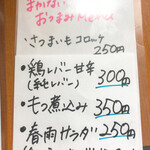 まかない
おつまみmenu
・さつまいもコロッケ
250円
・鶏レバー甘辛
(純レバー) 300円
・もつ煮込み 350円
・春雨サラダ 250円